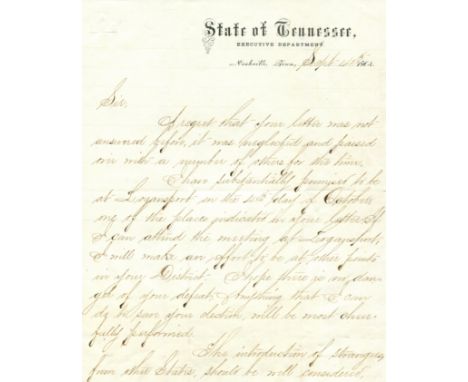 State of Tennessee,
EXECUTIVE DEPARTMENT
Nashville, Tenn, Sept 4th
Sir.
I regret that your letter was not
answered before, it was neglected and passed
over with a number of others for the time.
I have substantially promised to be
at Logansport on the 4th day of October
one of the places indicated in your letter. If
I can attend the meeting at Logansport,
I will make an effort to be at other points
in your District. I hope there is no dan-
ger of your defeat, Anything that I can
do to your election, will be most cheer-
fully performed.
The introduction of strangers
from other States, should be well considered,